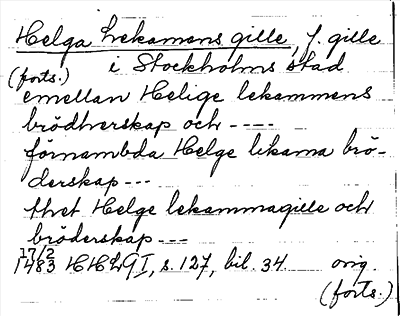 Helga Lekamens gille, f. gille
(forts.) i Stockholms stad
emellan Helige lekammens
brödherskap och ----
förnambda Helge likama brö-
derskap---
thet Helge lekammagille och
bröderskap ---
17/2
1483 HHLG I, s. 127, bil. 34. orig.
(forts.)